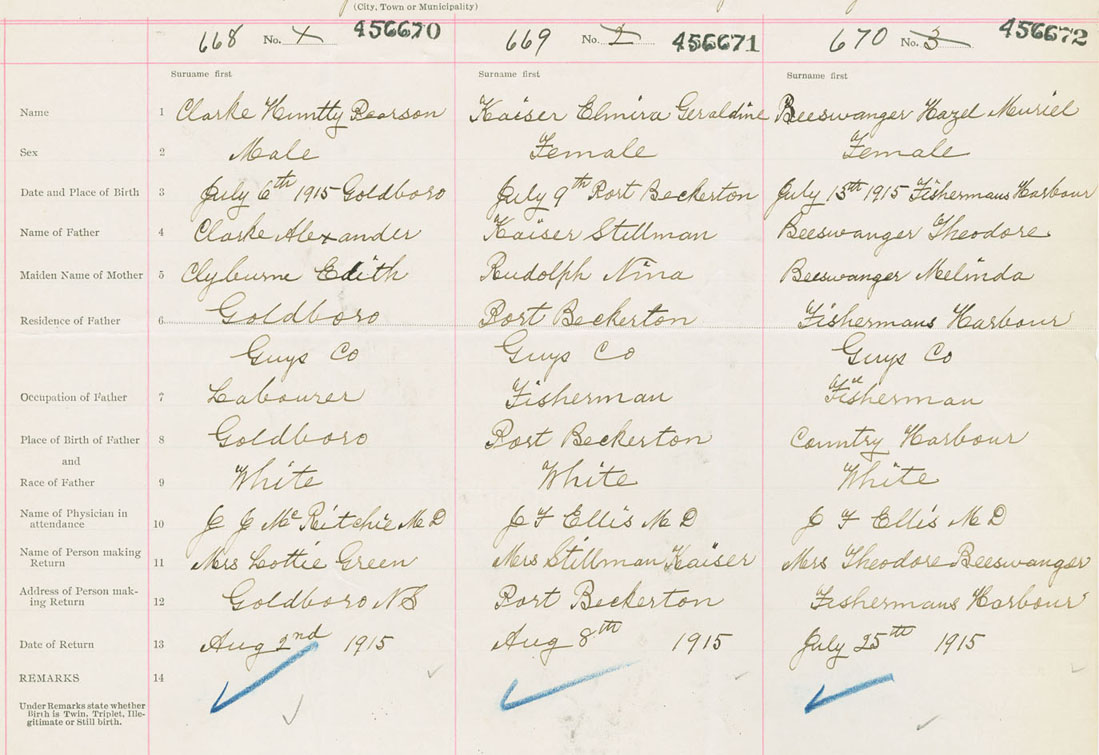 (City, Town or Municipality)
668 No. 1 456670 669 No. 2 456671 670 No. 3 456672
Surname first Surname first Surname first
Name 1 Clarke Huntty Pearson Kaiser Elmira Geraldine Beeswanger Hazel Muriel
Sex 2 Male Female Female
Date and Place of Birth 3 July 6th 1915 Goldboro July 9th Port Beckerton July 15th 1915 Fishermans Harbour
Name of Father 4 Clarke Alexander Kaiser Stillman Beeswanger Theodore
Maiden Name of Mother 5 Clyburne Edith Rudolph Nina Beeswanger Melinda
Residence of Father 6 Goldboro Port Beckerton Fishermans Harbour
Guys Co Guys Co Guys Co
Occupation of Father 7 Labourer Fisherman Fisherman
Place of Birth of Father 8 Goldboro Port Beckerton Country Harbour
and
Race of Father 9 White White White
Name of Physician in
attendance 10 J J Mc Ritchie M D J F Ellis M D J F Ellis M D
Name of Person making
Return 11 Mrs Lottie Green Mrs Stillman Kaiser Mrs Theodore Beeswanger
Address of Person mak-
ing Return 12 Goldboro NS Port Beckerton Fishermans Harbour
Date of Return 13 Aug 2nd 1915 Aug 8th 1915 July 25th 1915
REMARKS 14
Under Remarks state whether
Birth is Twin, Triplet, Ille-
gitimate or Still birth.